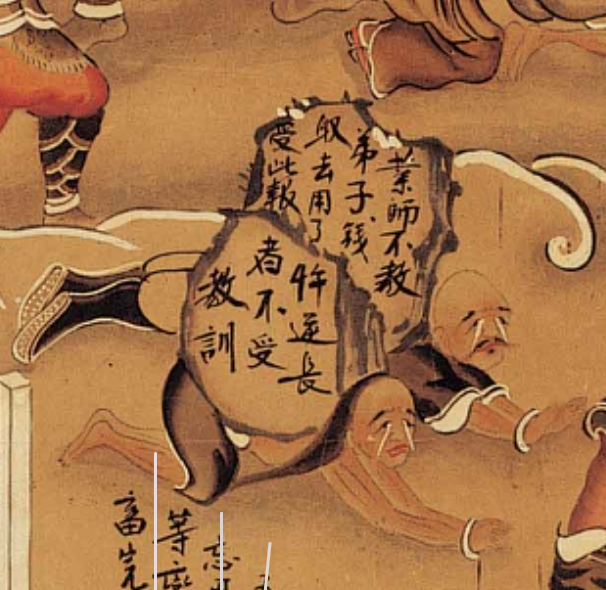 業師不教
弟子錢
取去用了
受此報
忤逆長
者不受
教訓
等
畜